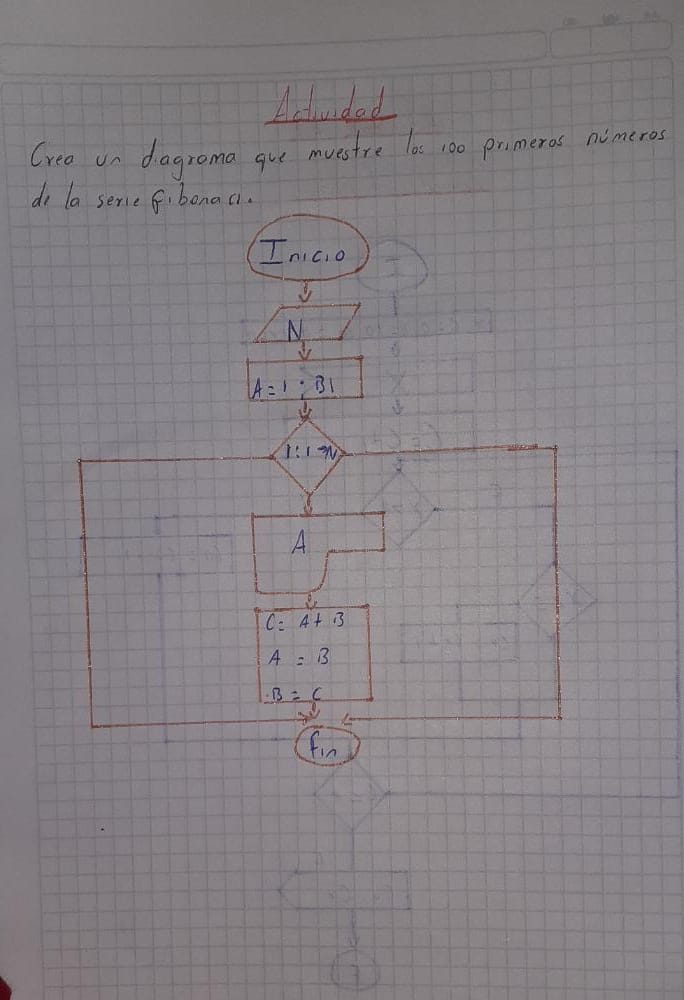 Actividad
Creo un diagrama que muestre los 100 primeros números
de la serie fibonaci.
Inicio
N
A=1 ; B1
1:1→N
A
C= A+ B
A = B
B = C
fin